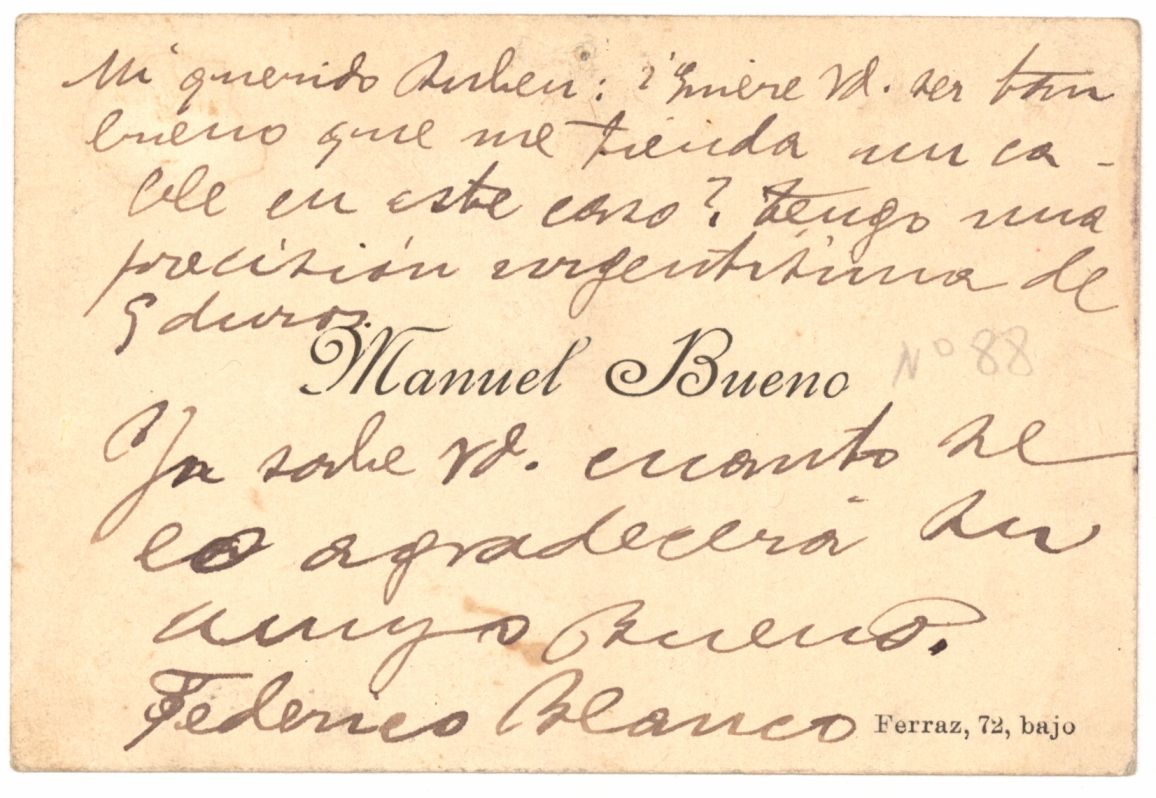 Mi querido Ruben: ¿Quiere Vd. ser tan
bueno que me tienda un ca-
ble en este caso? Tengo una
precisión urgentísima de
5 duros.
Manuel Bueno
Nº 88
Ya sabe Vd. cuanto se
lo agradecerá su
amigo Bueno.
Federico Blanco
Ferraz, 72, bajo